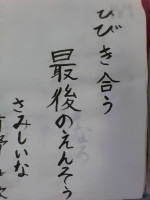 ひびき合う
最後のえんそう
さみしいな